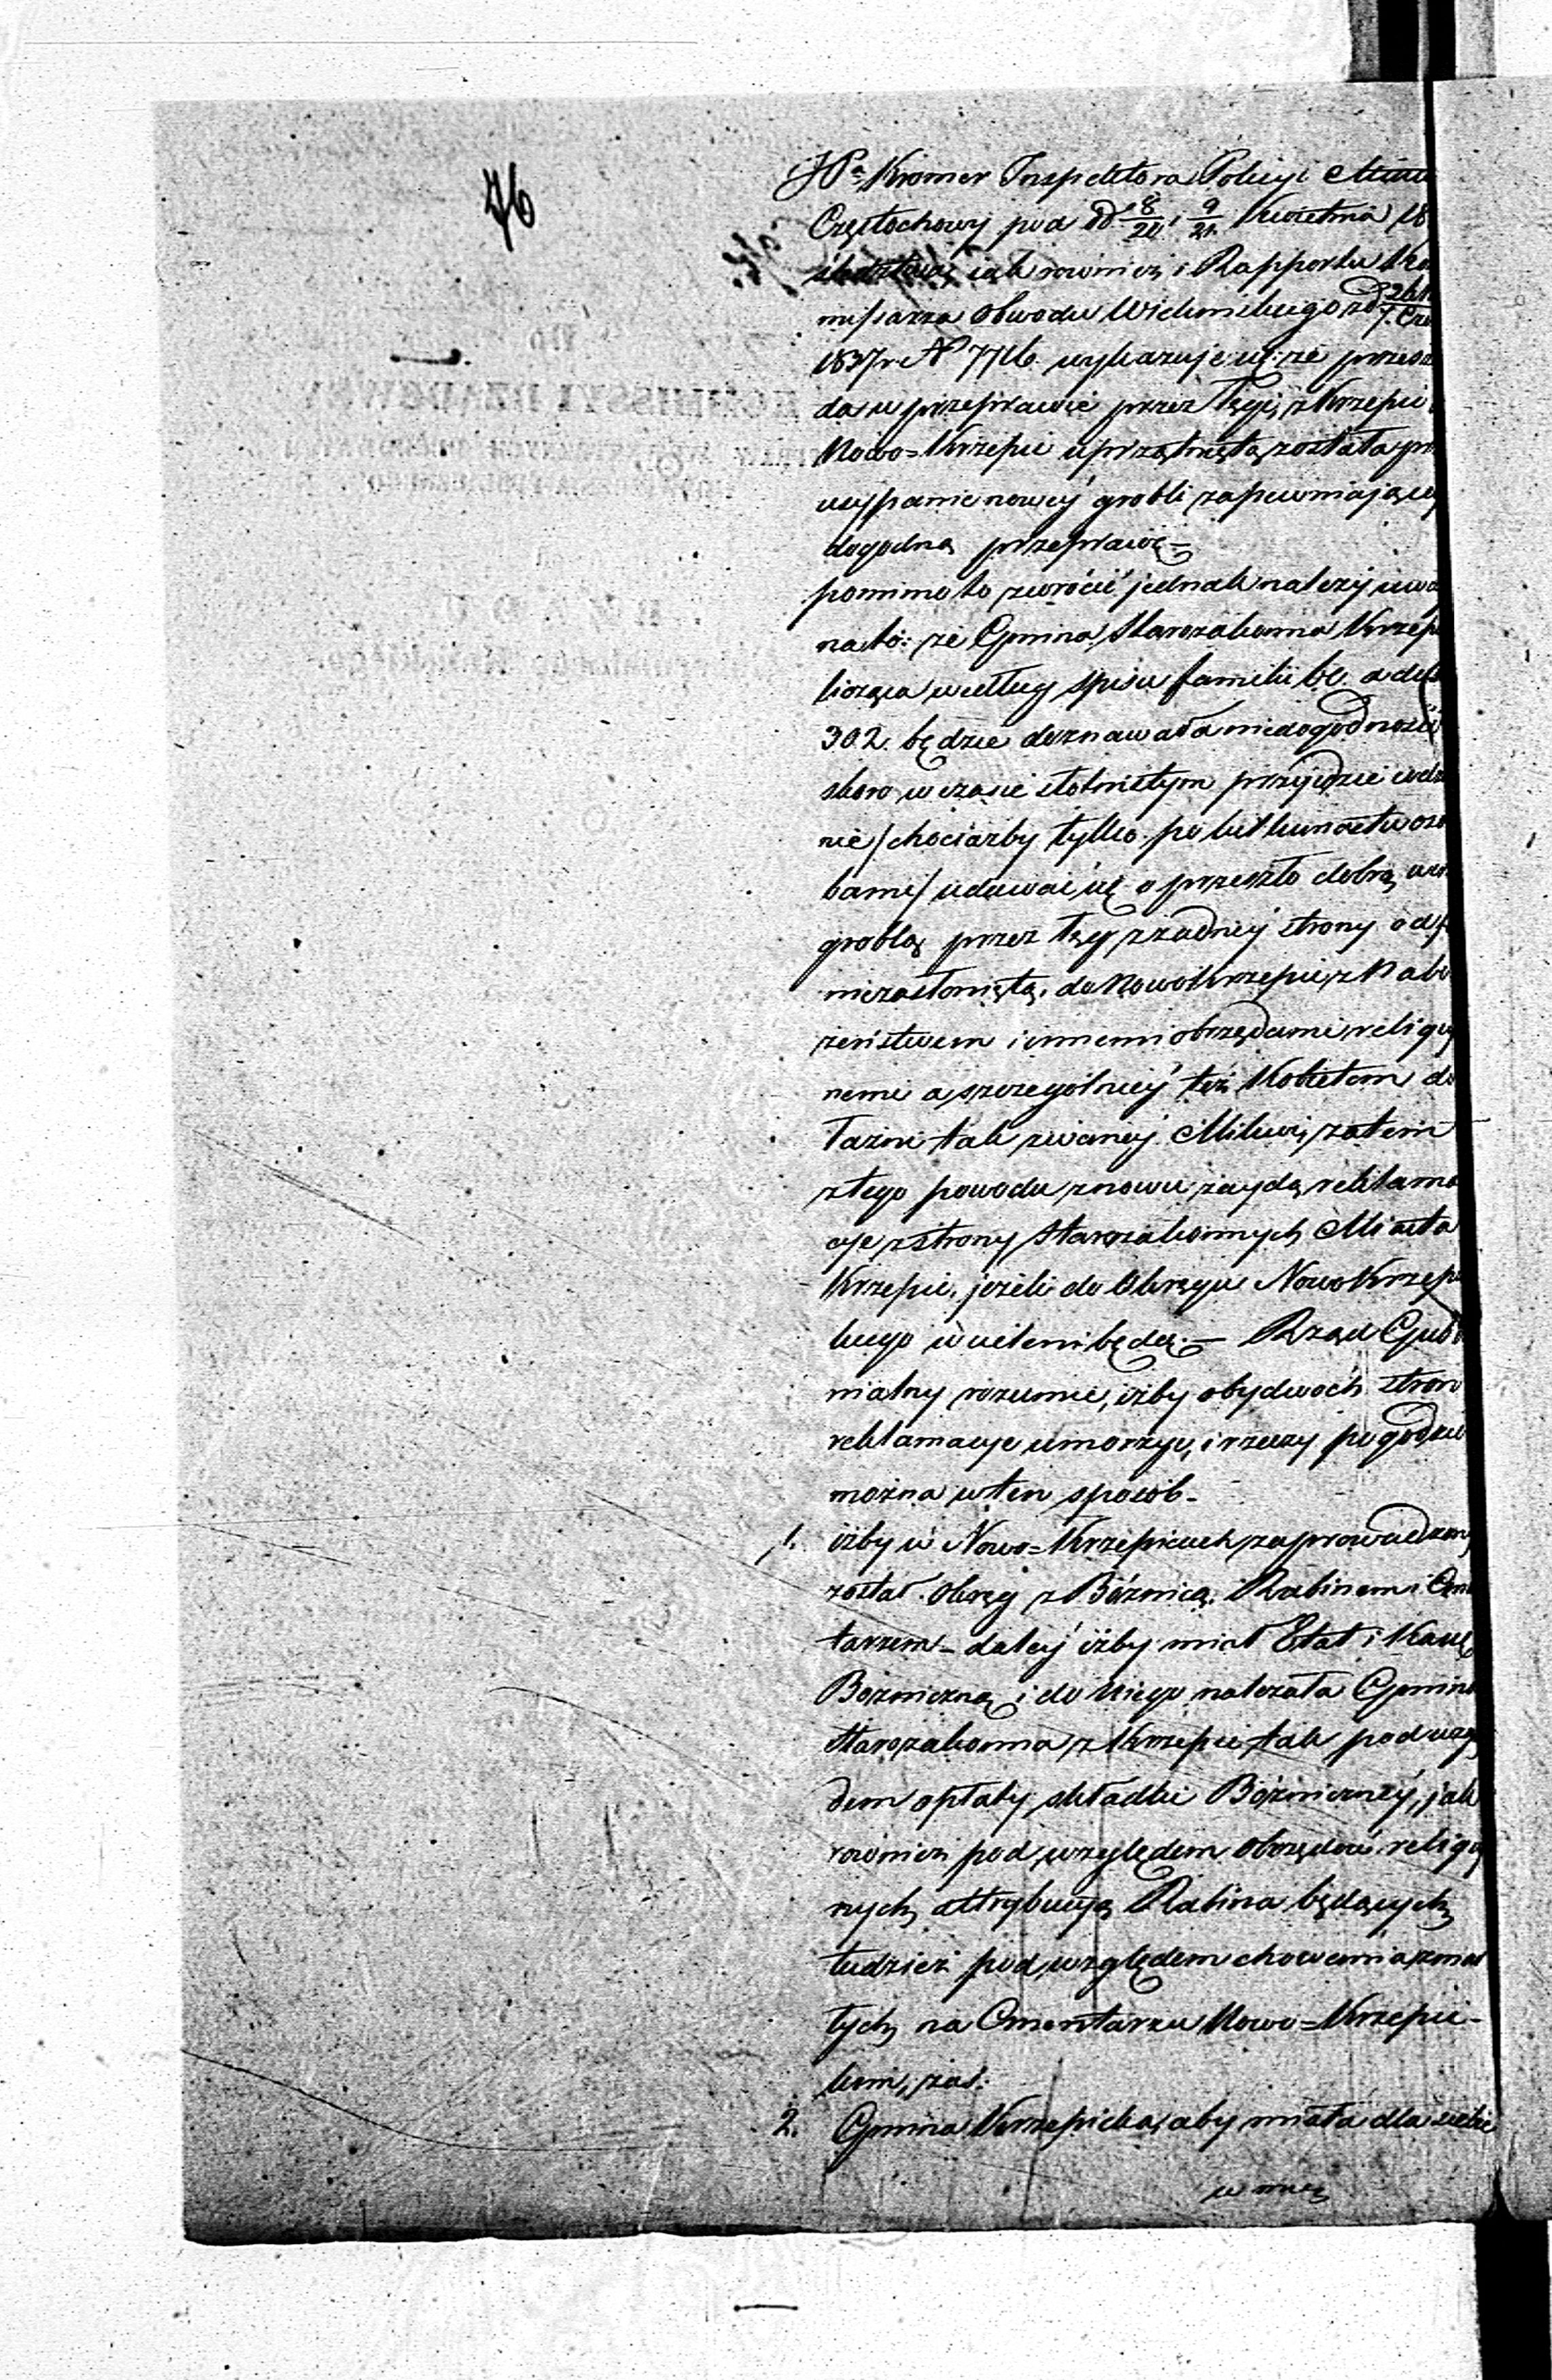 76
JPa Kromer Inspektora Policyi Mia
Częstochowy pod d 8/20 i 9/21 Kwietnia 18
śledztwa, iak rownież i Rapportu Ko
missarza Obwodu Wieluńskiego z d 26
1837 r. No 7716. wykazuje się: że przeszko
da w przeprawie przez łęgi z Krzepic
Nowo=Krzepic uprzątniętą została prz
usypanie nowey grobli zapewniaiącey
dogodną przeprawę –
pomimo to zwrócić jednak należy uwa
na to: że Gmina Starozakonna Krzep
licząca według spisu familii 66. a dusz
302. będzie doznawała niedogodności
skoro w czasie słotnistym przyjdzie
nie /chociażby tylko po kilkunastu oso
bami/ udawać się o przeszło dobrą
groblą przez łęg z żadney strony od
niezasłoniętą, do Nowokrzepic z Nabo
żeństwem i innemi obrzędami religiy
nemi a szczególniey też Kobietom do
łaźni tak zwaney Mikwi, zatem
z tego powodu znowu zaydą reklama
cye z strony Starozakonnych Miasta
Krzepic, jeżeli do Okręgu NowoKrzepi
ckiego wcieleni będą. – Rząd Gube
nialny rozumie, iżby obydwóch stron
reklamacye umorzyć, i rzeczy pogodzić
można w ten sposób –
1. iżby w Nowo=Krzepicach zaprowadzony
został Okręg z Bóżnicą, Rabinem i Cmę
tarzem – daley iżby miał Etat i Kassę
Bożniczną i do niego należała Gmina
Starozakonna z Krzepic tak pod wzglę
dem opłaty składki Bóżniczney, jak
rownież pod względem obrzędów religiy
nych attrybucyą Rabina będących,
tudzież pod względem chowania zmar
łych na Cmentarzu Nowo=Krzepic-
kim, zaś:
2. Gmina Krzepicka, aby miała dla siebie